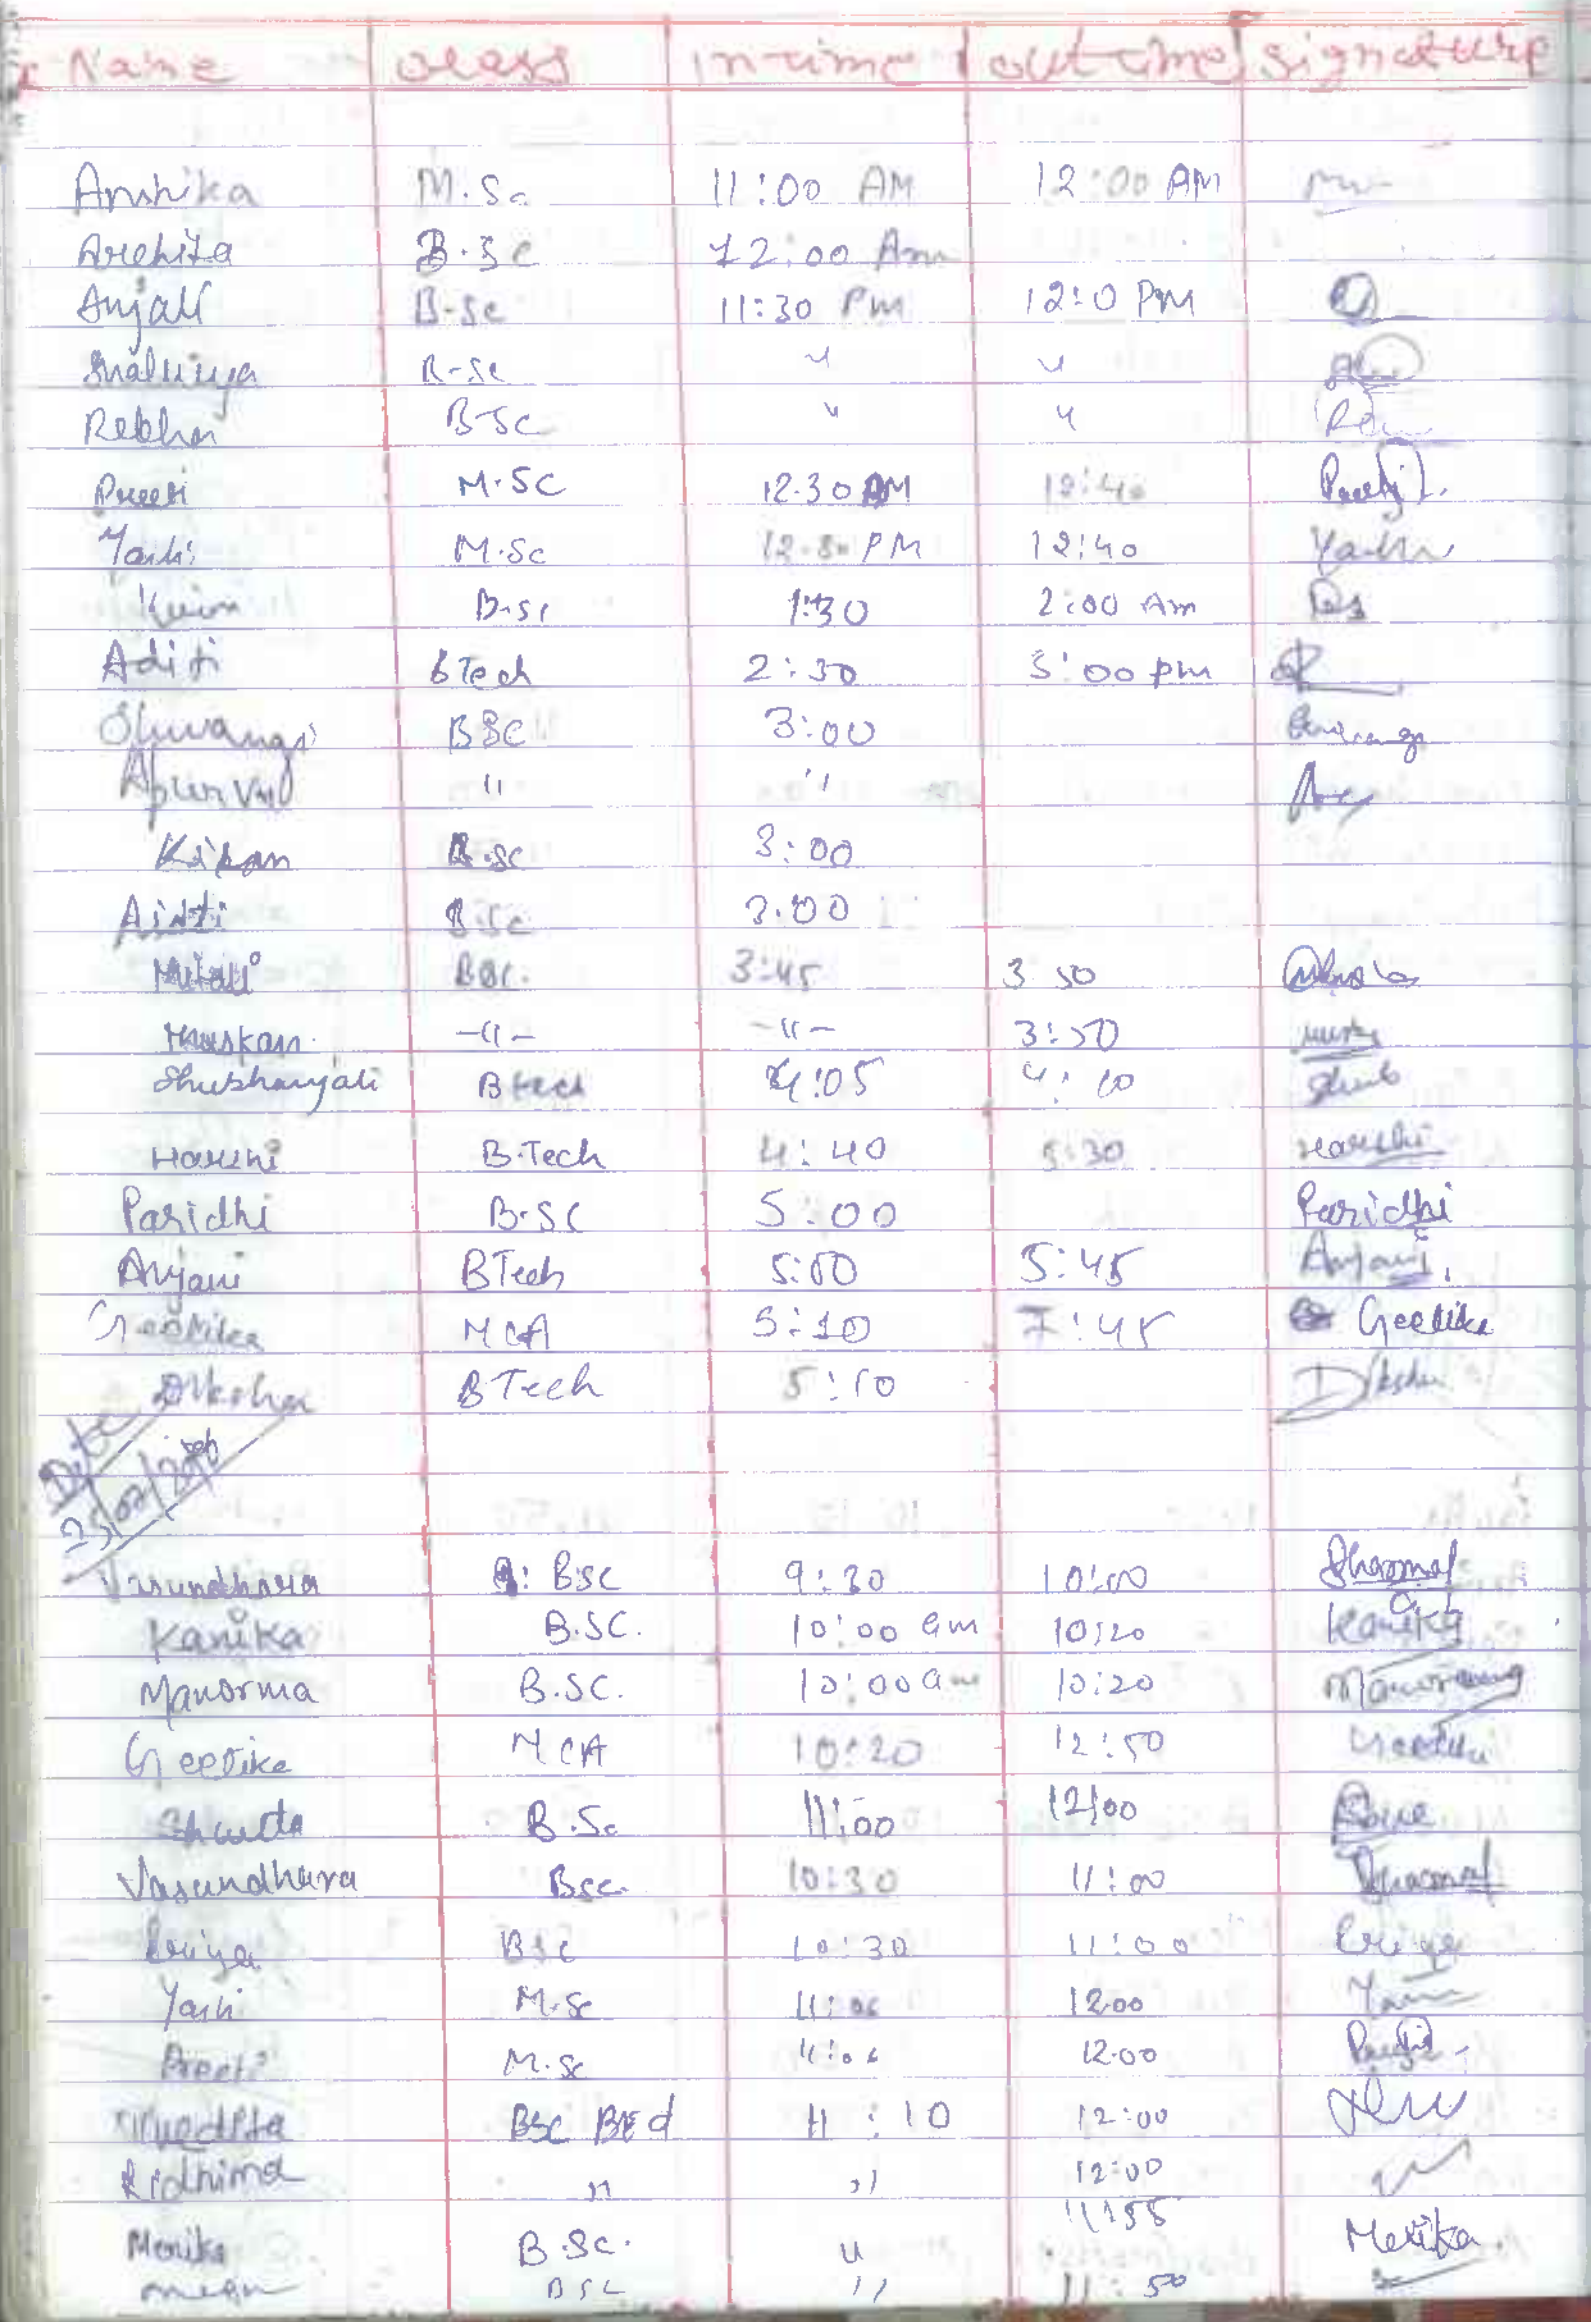 Name class in-time out time signature
Anshika M.Sc 11:00 AM 12:00 AM
Archita B.Sc 12:00 Am
Anjali B-Sc 11:30 Pm 12:0 PM
B-Sc " "
Rekha BSc " "
Preeti M.SC 12.30 AM 12:40 Preeti
Yashi M.Sc PM 12:40 Yashi
B.Sc 1:30 2:00 Am
Aditi BTech 2:30 3:00 pm
Shivangi BSC 3:00 Shivangi
Apurva " "
Kiran B.Sc 3:00
B.Sc 3:00
Mitali BSC. 3:45 3 50
Muskan -"- -"- 3:50
Shubhanjali Btech 4:05 4:10 Shub
Harshi B.Tech 4:40 5:30 Harshi
Paridhi B.SC 5:00 Paridhi
Anjani BTech 5:00 5:45 Anjani
Geetika MCA 5:10 7:45 Geetika
Diksha BTech 5:10 Diksha
Date
Vasundhara BSC 9:30 10:00
Kanika B.SC. 10:00 am 10:20 Kanika
Manorma B.SC. 10:00 am 10:20 Manorma
Geetika MCA 10:20 12:50 Geetika
Shweta B.Sc 11:00 12:00
Vasundhara Bsc. 10:30 11:00
Priya BSc 10:30 11:00 Priya
Yashi M.Sc 11:00 12.00
Preeti M.Sc 12.00 Preeti
BSC BEd 11:10 12:00
Ridhima " " 12:00
B.Sc. " 11:55
BSC " 11:50